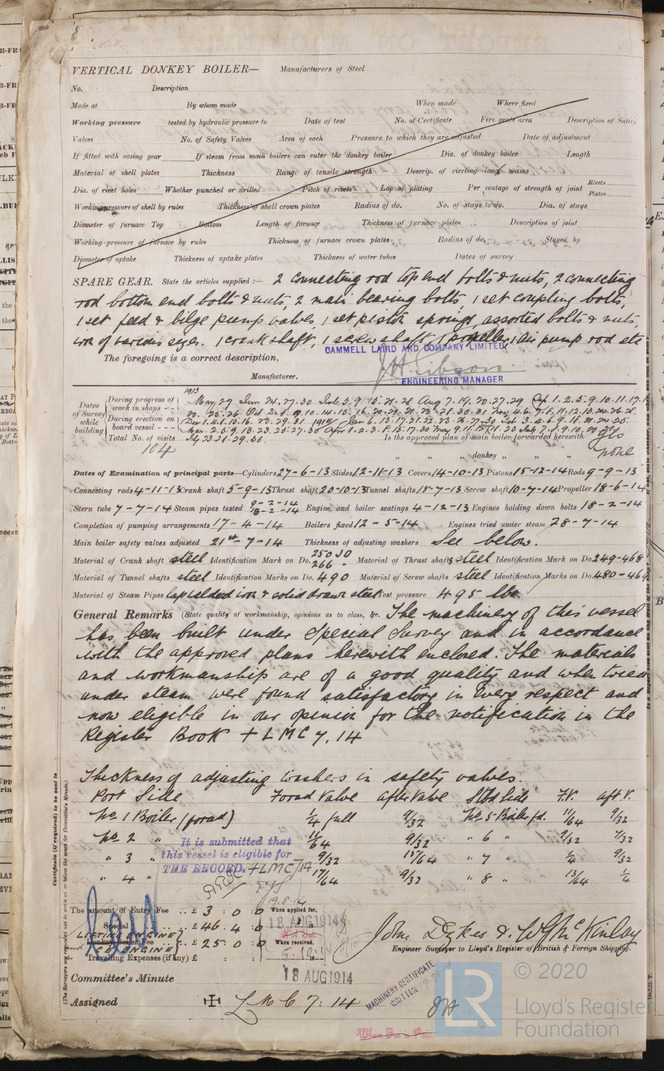 VERTICAL DONKEY BOILER— Manufacturers of Steel
No. Description
Made at By whom made When made Where fixed
Working pressure tested by hydraulic pressure to Date of test No. of Certificate Fire grate area Description of Safety
Valves No. of Safety Valves Area of each Pressure to which they are adjusted Date of adjustment
If fitted with easing gear If steam from main boilers can enter the donkey boiler Dia. of donkey boiler Length
Material of shell plates Thickness Range of tensile strength Descrip. of riveting long. seams
Dia. of rivet holes Whether punched or drilled Pitch of rivets Lap of plating Per centage of strength of joint Rivets
Plates
Working pressure of shell by rules Thickness of shell crown plates Radius of do. No. of stays to do. Dia. of stays
Diameter of furnace Top Bottom Length of furnace Thickness of furnace plates Description of joint
Working pressure of furnace by rules Thickness of furnace crown plates Radius of do. Stayed by
Diameter of uptake Thickness of uptake plates Thickness of water tubes Dates of survey
SPARE GEAR. State the articles supplied :— 2 connecting rod top end bolts & nuts, 2 connecting
rod bottom end bolts & nuts, 2 main bearing bolts, 1 set coupling bolts,
1 set feed & bilge pump valves, 1 set piston springs, assorted bolts & nuts,
iron of various sizes. 1 crank shaft, 1 screw shaft, 1 propeller, 1 air pump rod etc
CAMMELL LAIRD AND COMPANY LIMITED
The foregoing is a correct description,
Manufacturer.
ENGINEERING MANAGER
Dates of Survey while building
During progress of work in shops - -
During erection on board vessel - - -
Total No. of visits 104
1913
Is the approved plan of main boiler forwarded herewith yes
" " " donkey " " " none
Dates of Examination of principal parts—Cylinders 27-6-13 Slides 12-11-13 Covers 14-10-13 Pistons 15-12-14 Rods 9-9-13
Connecting rods 4-11-13 Crank shaft 5-9-13 Thrust shaft 20-10-13 Tunnel shafts 15-7-13 Screw shaft 10-7-14 Propeller 18-6-14
Stern tube 7-7-14 Steam pipes tested 9-2-14 18-2-14 Engine and boiler seatings 4-12-13 Engines holding down bolts 18-2-14
Completion of pumping arrangements 17-4-14 Boilers fixed 12-5-14 Engines tried under steam 28-7-14
Main boiler safety valves adjusted 21st-7-14 Thickness of adjusting washers See below.
Material of Crank shaft steel Identification Mark on Do. 266 Material of Thrust shaft steel Identification Mark on Do 249-468
Material of Tunnel shafts steel Identification Marks on Do. 490 Material of Screw shafts steel Identification Marks on Do. 480-469
Material of Steam Pipes lap welded iron & solid drawn steel Test pressure 495 lbs.
General Remarks (State quality of workmanship, opinions as to class, &c. The machinery of this vessel
has been built under Special Survey and in accordance
with the approved plans herewith enclosed. The materials
and workmanship are of a good quality and when tried
under steam were found satisfactory in every respect and
now eligible in our opinion for the notification in the
Register Book + LMC 7, 14
Thickness of adjusting washers in safety valves.
Port Side Forward Valve after Valve Stbd Side F.V. aft V.
No 1 Boiler (forad) 1/4 full 9/32 No 5 Boiler fd. 11/16 9/32
No 2 " 11/64 9/32 " 6 " 9/32 7/32
" 3 " 9/32 15/64 " 7 " 1/4 9/32
" 4 " 17/64 9/32 " 8 " 13/64 1/4
It is submitted that
this vessel is eligible for
THE RECORD. + LMC 7.14
The amount of Entry Fee .. £ 3 : 0 : 0 When applied for,
Special .. £ 46 : 4 : 0 18 AUG 1914
£ 25 : 0 : 0 When received,
Travelling Expenses (if any) £
John Dykes & McKinley
Engineer Surveyor to Lloyd's Register of British & Foreign Shipping.
Committee's Minute 18 AUG 1914
Assigned + L M C 7 : 14
MACHINERY CERTIFICATE
WRITTEN
Certificate (if required) to be sent to
(The Surveyors are requested not to write on or below the space for Committee's Minute.)
LR
© 2020
Lloyd's Register
Foundation